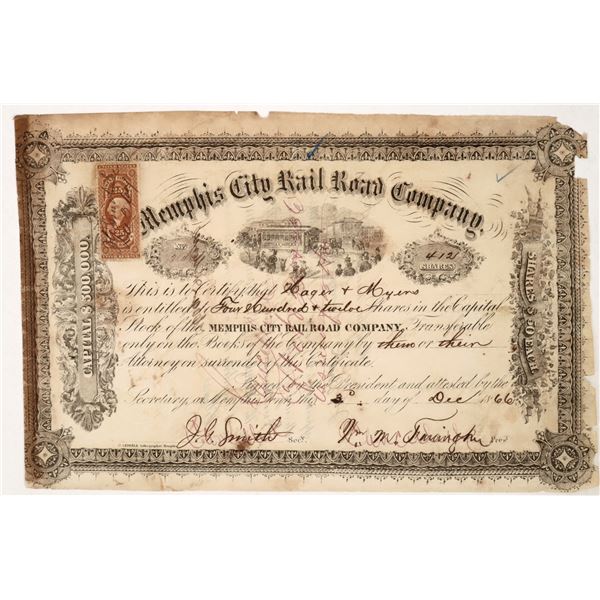 Memphis City Rail Road Company.
No.
412
SHARES
CAPITAL $500,000.
SHARES
25
This is to Certify that Hager & Myers
is entitled to Four Hundred & twelve Shares in the Capital
Stock of the MEMPHIS CITY RAIL ROAD COMPANY, Transferable
only on the Books of the Company by them or their
Attorney on surrender of this Certificate.
Signed by the President and attested by the
Secretary, at Memphis Tenn. this 3d day of Dec 1866
J. C. Smith Secy. Wm M. Pres
Lithographer Memphis